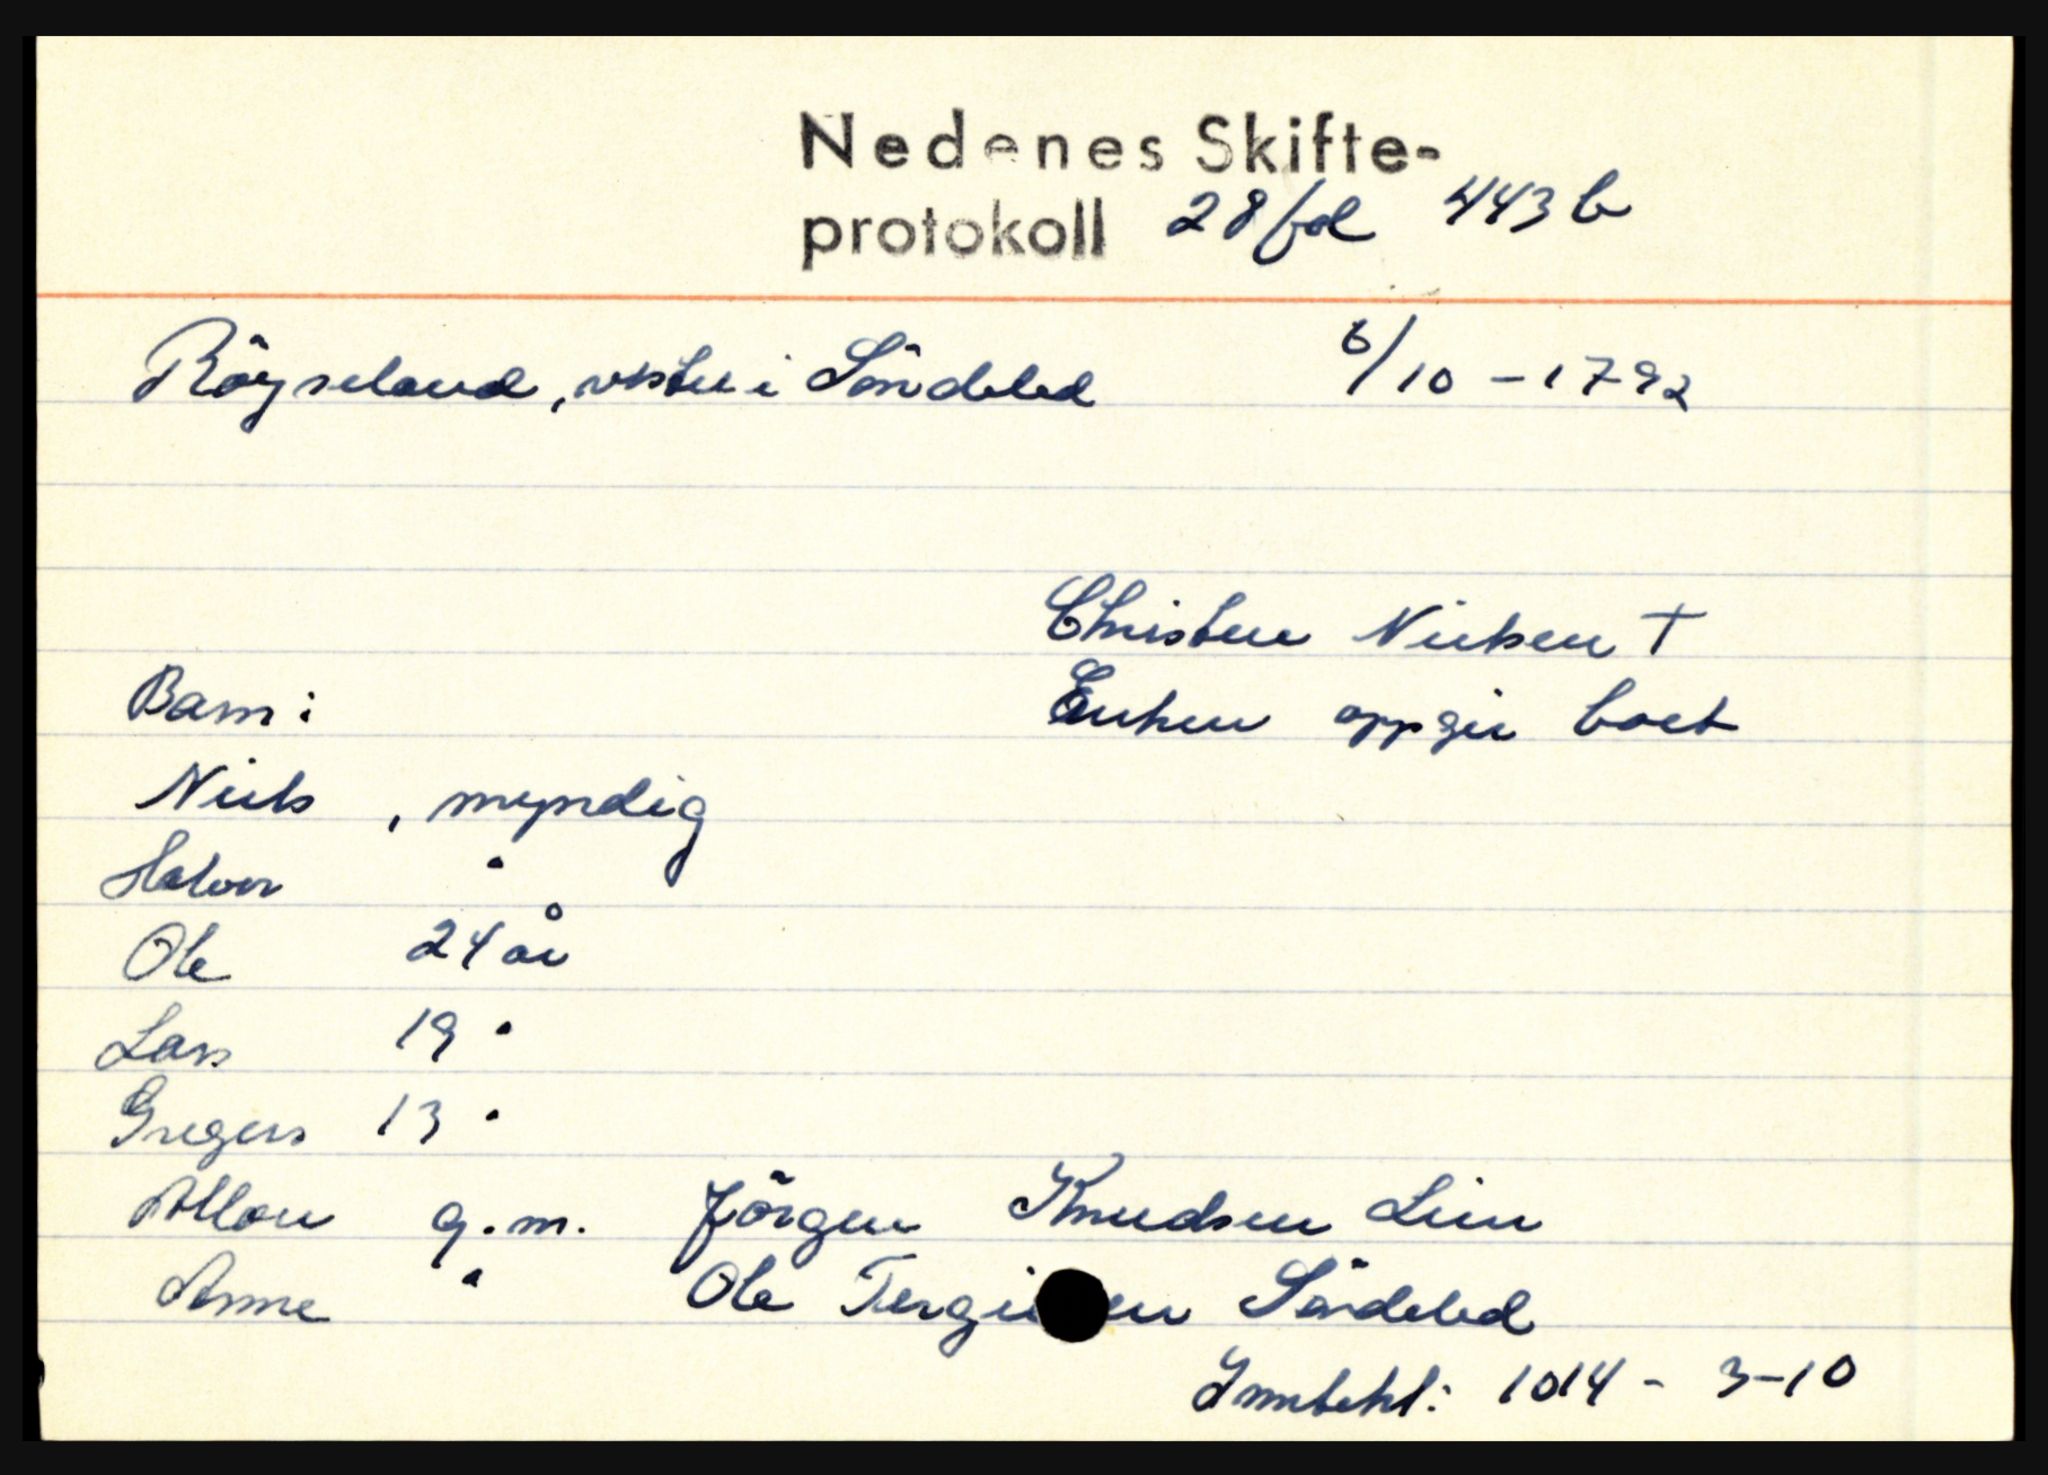 Nedenes Skifte-
protokoll 28 fol 443 b
Röyseland, vestre i Söndeled 6/10 - 1792
Christen Nielsen †
Barn: Enken oppgir boet
Niels , myndig
Halvor "
Ole 24 år
Lars 19 "
Gregers 13 "
g.m. Jörgen Knudsen Lien
Anne " Ole Söndeled
1014 - 3 - 10